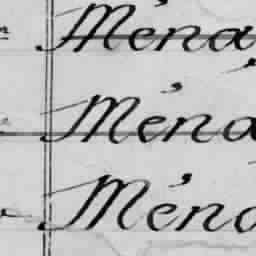 Ména
Ména
Ména